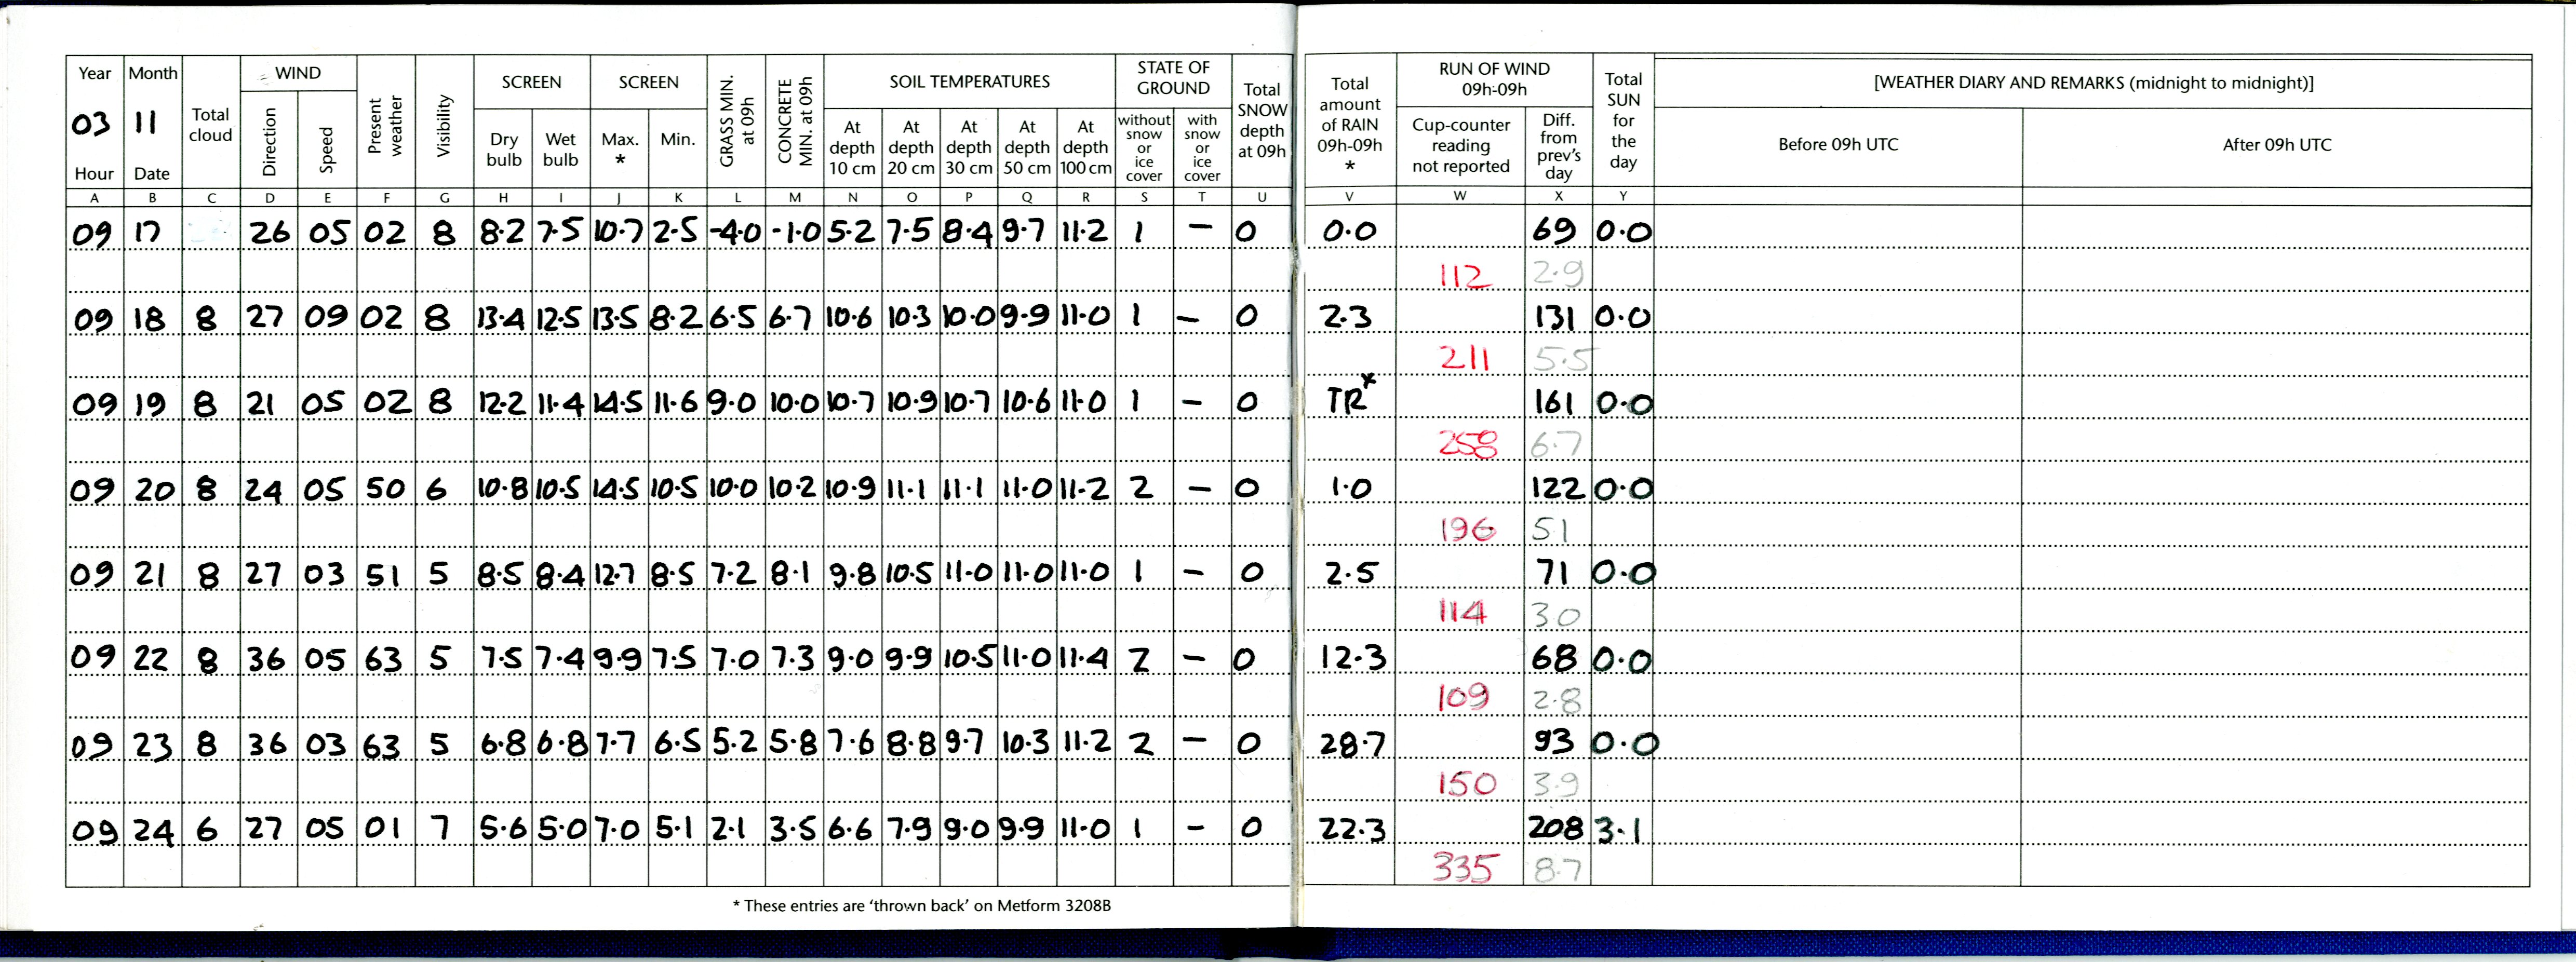 Year Month Total cloud WIND Present weather Visibility SCREEN SCREEN GRASS MIN. at 09h CONCRETE MIN. at 09h SOIL TEMPERATURES STATE OF GROUND Total SNOW depth at 09h Total amount of RAIN 09h-09h * RUN OF WIND 09h-09h Total SUN for the day [WEATHER DIARY AND REMARKS (midnight to midnight)]
03 11 Direction Speed Dry bulb Wet bulb Max. * Min. At depth 10 cm At depth 20 cm At depth 30 cm At depth 50 cm At depth 100 cm without snow or ice cover with snow or ice cover Cup-counter reading not reported Diff. from prev's day Before 09h UTC After 09h UTC
Hour Date
A B C D E F G H I J K L M N O P Q R S T U V W X Y
09 17 26 05 02 8 8.2 7.5 10.7 2.5 -4.0 -1.0 5.2 7.5 8.4 9.7 11.2 1 - 0 0.0 69 0.0
112 2.9
09 18 8 27 09 02 8 13.4 12.5 13.5 8.2 6.5 6.7 10.6 10.3 10.0 9.9 11.0 1 - 0 2.3 131 0.0
211 5.5
09 19 8 21 05 02 8 12.2 11.4 14.5 11.6 9.0 10.0 10.7 10.9 10.7 10.6 11.0 1 - 0 TR* 161 0.0
258 6.7
09 20 8 24 05 50 6 10.8 10.5 14.5 10.5 10.0 10.2 10.9 11.1 11.1 11.0 11.2 2 - 0 1.0 122 0.0
196 51
09 21 8 27 03 51 5 8.5 8.4 12.7 8.5 7.2 8.1 9.8 10.5 11.0 11.0 11.0 1 - 0 2.5 71 0.0
114 30
09 22 8 36 05 63 5 7.5 7.4 9.9 7.5 7.0 7.3 9.0 9.9 10.5 11.0 11.4 2 - 0 12.3 68 0.0
109 2.8
09 23 8 36 03 63 5 6.8 6.8 7.7 6.5 5.2 5.8 7.6 8.8 9.7 10.3 11.2 2 - 0 28.7 93 0.0
150 3.9
09 24 6 27 05 01 7 5.6 5.0 7.0 5.1 2.1 3.5 6.6 7.9 9.0 9.9 11.0 1 - 0 22.3 208 3.1
335 8.7
* These entries are 'thrown back' on Metform 3208B